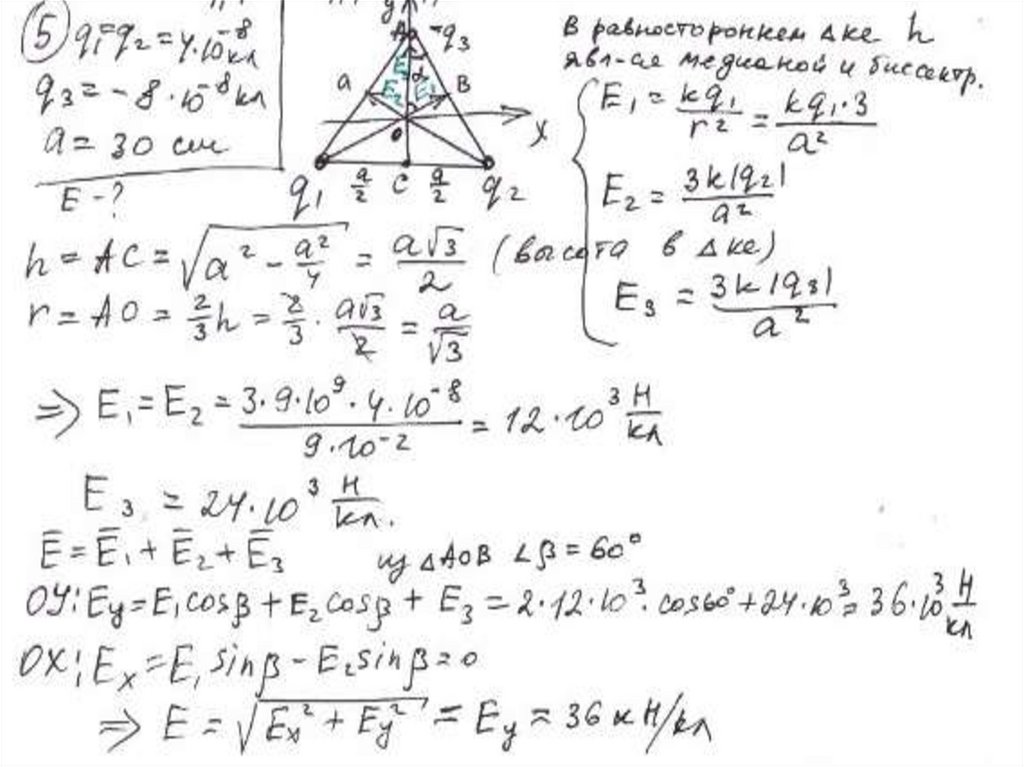 5 q₁=q₂=4·10⁻⁸кл
q₃=-8·10⁻⁸кл
a=30 см
E-?
y
A -q₃
E₃ α
a E₂ E₁ B
O X
q₁ a/2 C a/2 q₂
В равностороннем Δке h
явл-ся медианой и биссектр.
E₁ = kq₁/r² = kq₁·3/a²
E₂ = 3k|q₂|/a²
E₃ = 3k|q₃|/a²
h = AC = √(a² - a²/4) = a√3/2 (высота в Δке)
r = AO = 2/3 h = 2/3 · a√3/2 = a/√3
⇒ E₁ = E₂ = 3·9·10⁹·4·10⁻⁸/9·10⁻² = 12·10³ Н/кл
E₃ = 24·10³ Н/кл.
Ē = Ē₁ + Ē₂ + Ē₃ из ΔAOB ∠β = 60°
OY: Ey = E₁cosβ + E₂cosβ + E₃ = 2·12·10³·cos60° + 24·10³ = 36·10³ Н/кл
OX: Ex = E₁sinβ - E₂sinβ = 0
⇒ E = √(Ex² + Ey²) = Ey = 36 кН/кл